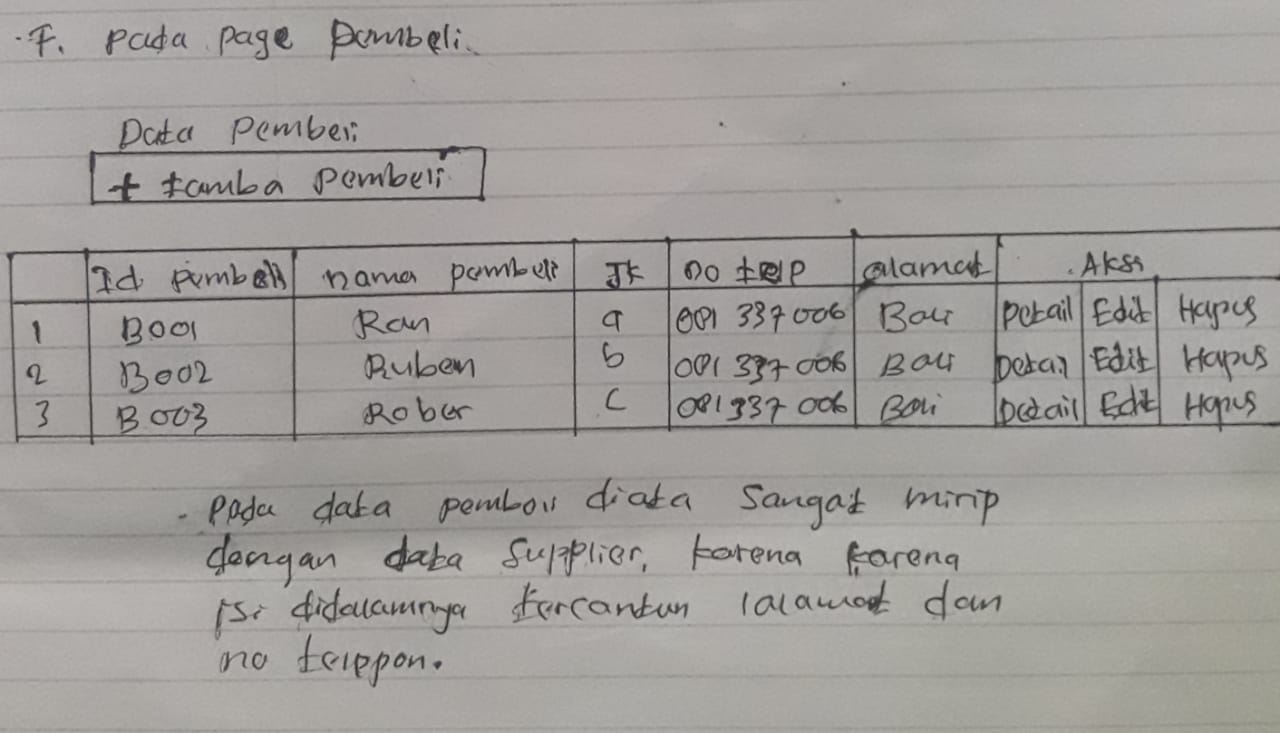 F. pada page pembeli.
Data pembeli
+ tamba pembeli
Id pembeli nama pembeli JK no telp alamat Aksi
1 B001 Ran a 081 337 006 Bali Detail Edit Hapus
2 B002 Ruben b 081 337 006 Bali Detail Edit Hapus
3 B003 Rober c 081 337 006 Bali Detail Edit Hapus
- pada data pembeli diata sangat mirip
dengan data supplier, karena karena
isi didalamnya tercantun lalamat dan
no telppon.